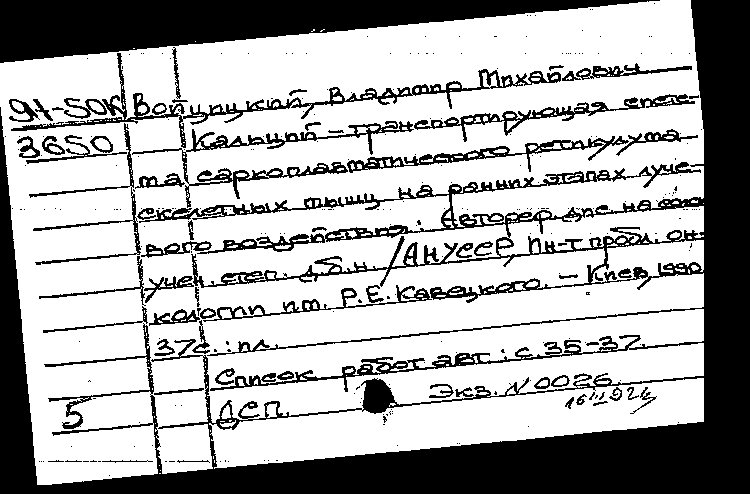 9Н-50К Войцицкий, Владимир Михайлович
3650 Кальций-транспортирующая систе-
ма саркоплазматического ретикулума
скелетных мышц на ранних этапах луче-
вого воздействия: Автореф. дис. на соиск
учен. степ. д.б.н. / АН УССР, Ин-т пробл. он-
кологии им. Р.Е. Кавецкого. - Киев, 1990
37с.: ил.
Список работ авт.: с. 35-37.
5 ДСП. Экз. N 0026.